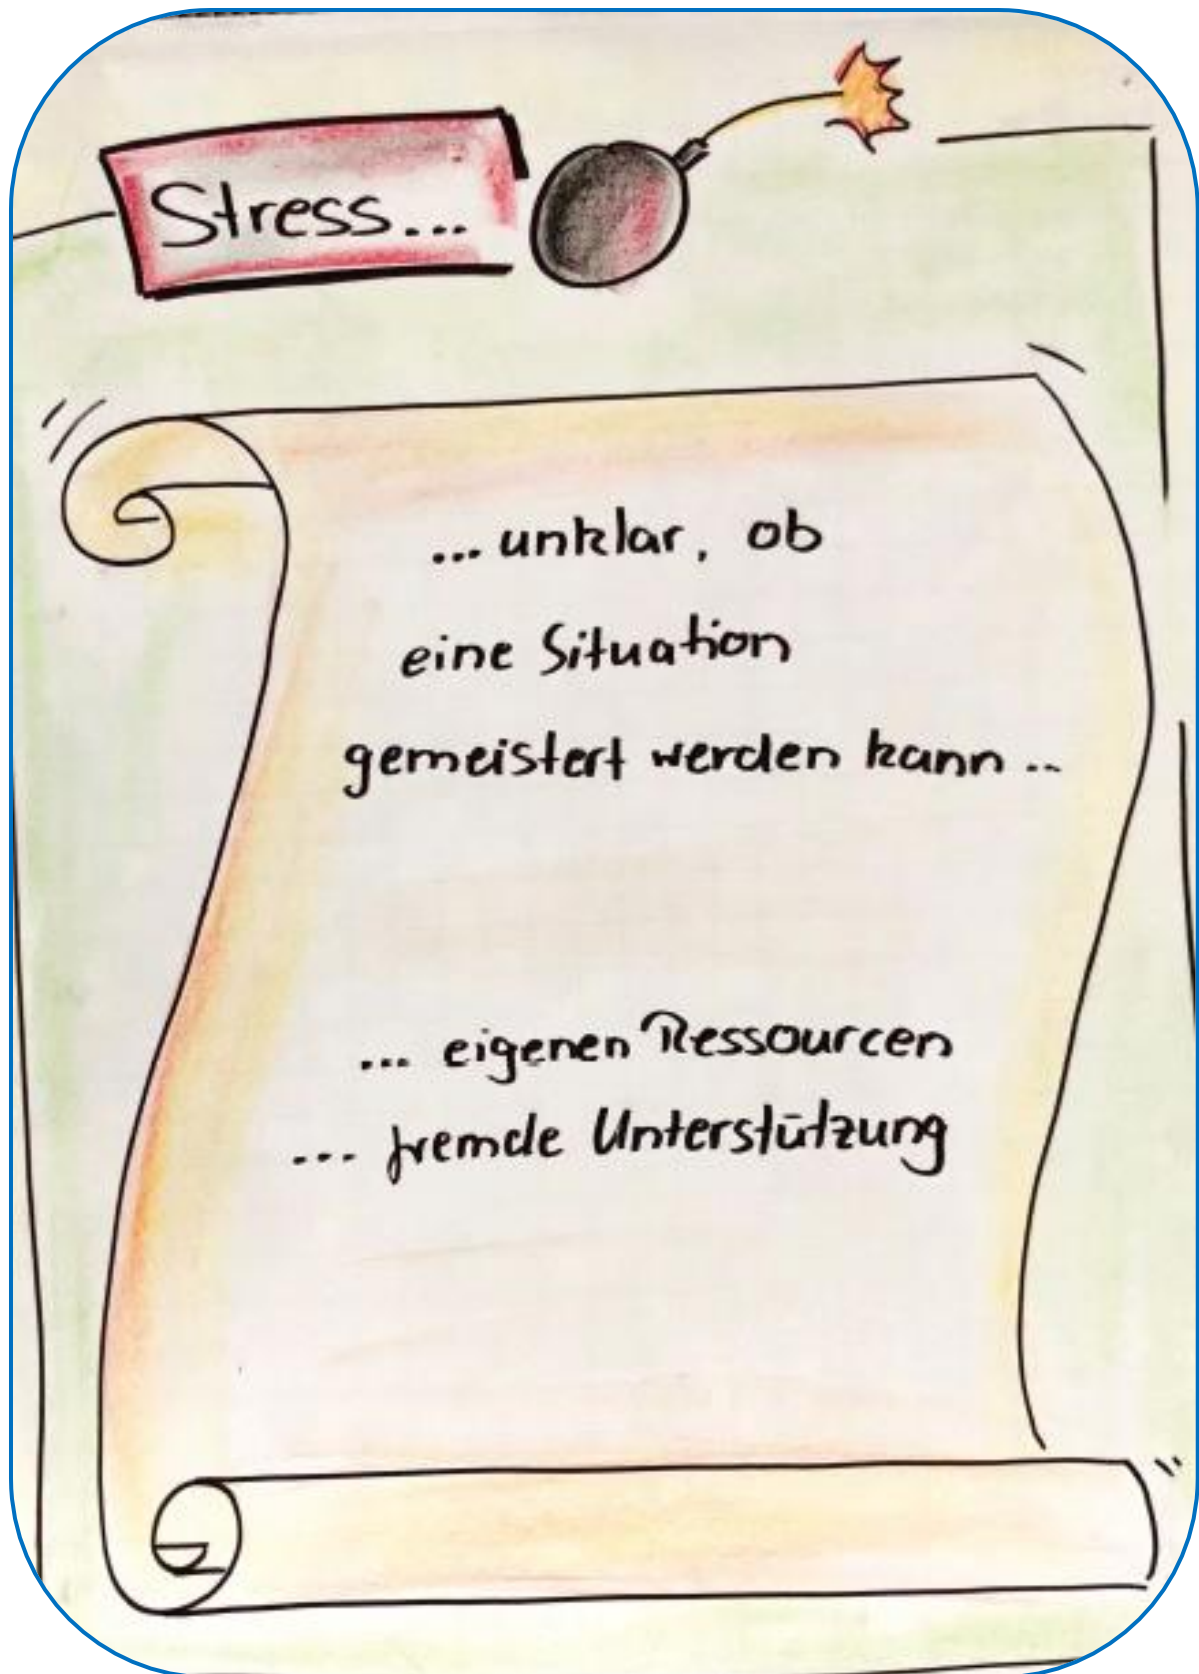 Stress...
...unklar, ob
eine Situation
gemeistert werden kann ..
... eigenen Ressourcen
... fremde Unterstützung